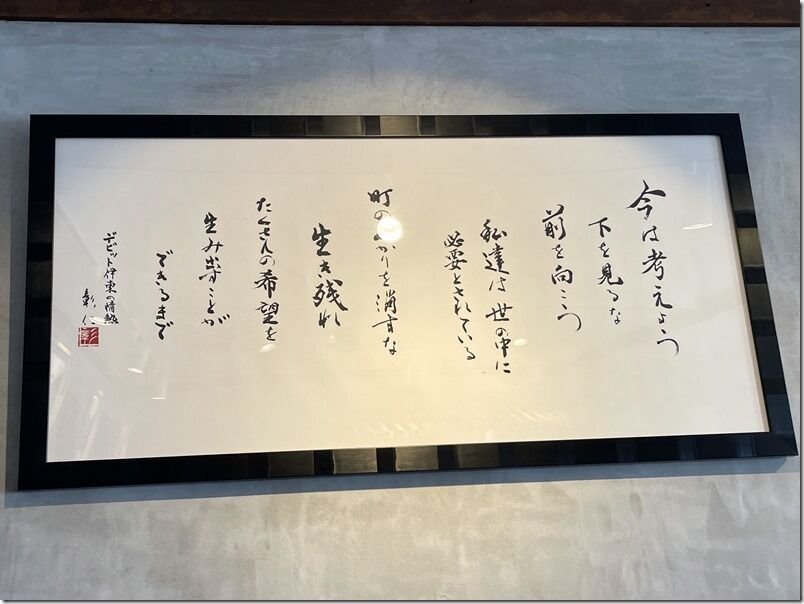 今は考えよう
下を見るな
前を向こう
私達は世の中に
必要とされている
町のかりを消すな
生き残れ
たくさんの希望を
生み出すことが
できるまで
デビット伊東の情熱